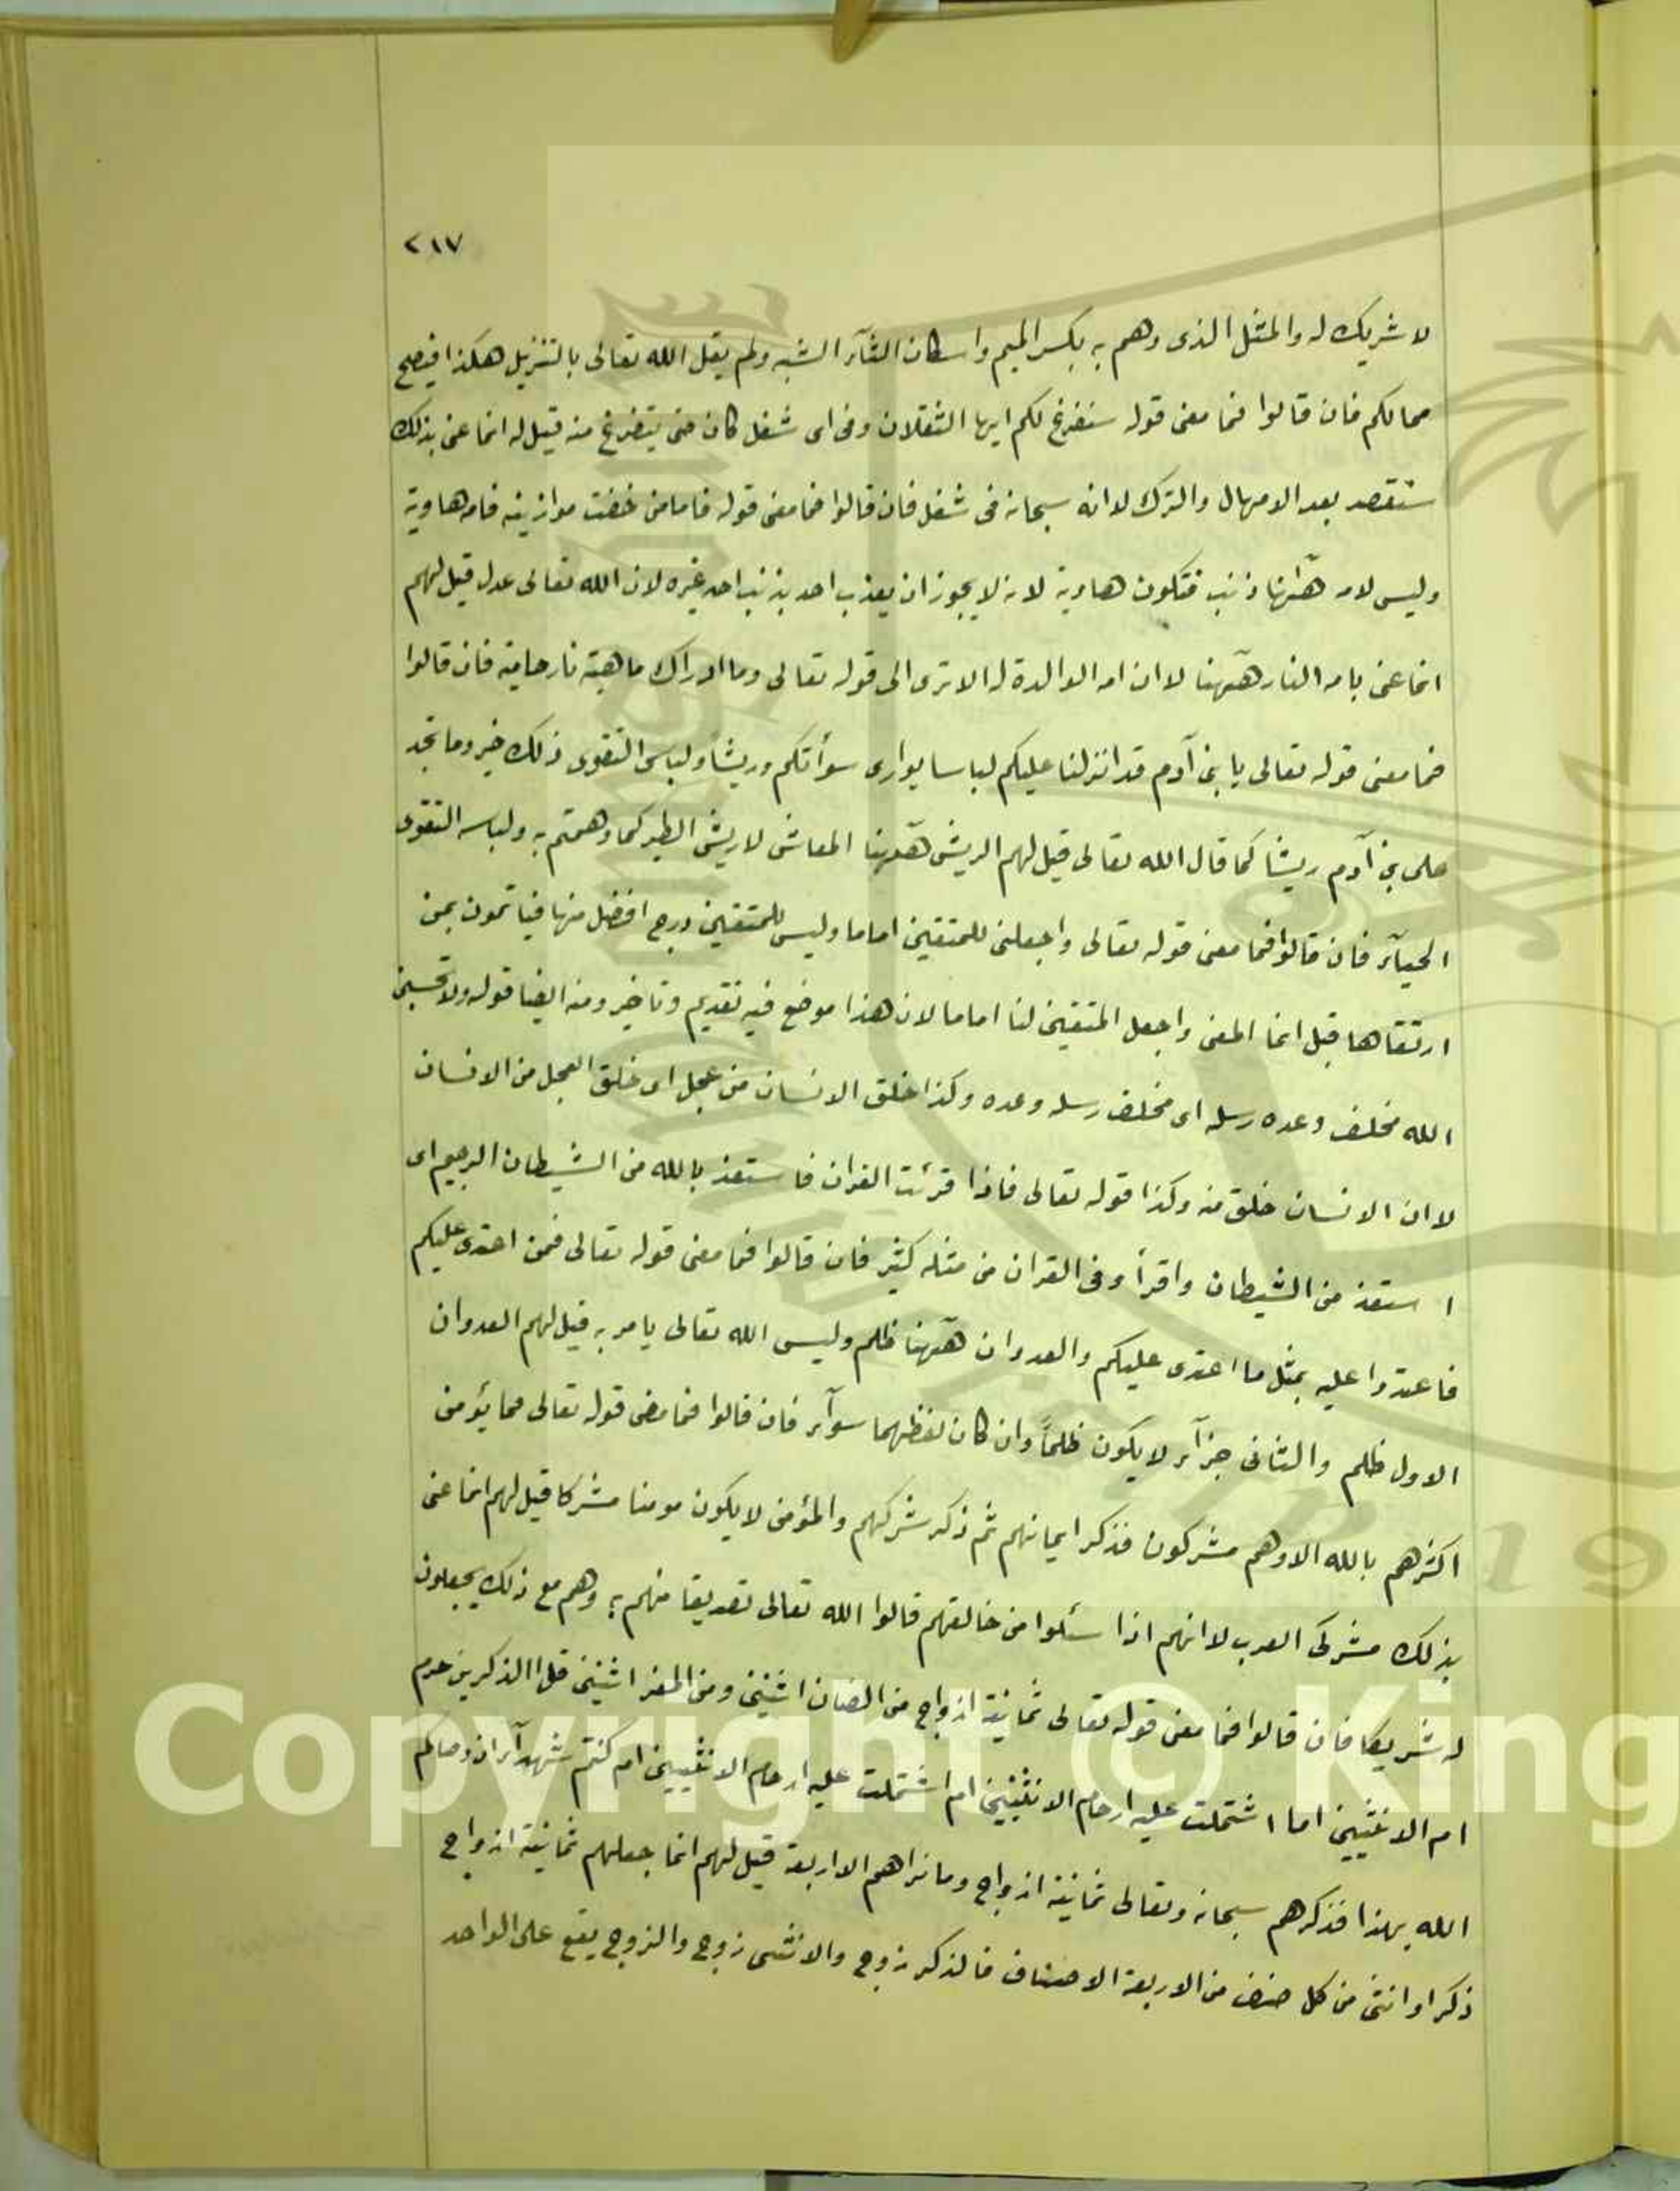 ٢١٧
لا شريك له والمثل الذى وهم به بكسر الميم واسكان الثآء الشبه ولم يقل الله تعالى بالتنزيل هكذا فيصح
محالكم فان قالوا فما معنى قوله سنفرغ لكم ايها الثقلان وفى اى شغل كان حتى يتفرغ منه قيل له انما عنى بذلك
سنقصد بعد الامهال والترك لا انه سبحانه فى شغل فان قالوا فما معنى قوله فاما من خفت موازينه فامه هاوية
وليس لامه هٓهنا ذنب فتكون هاوية لانه لا يجوز ان يعذب احد بذنب احد غيره لان الله تعالى عدل قيل لهم
انما عنى بامه النار هٓهنا لا ان امه الوالدة له الا ترى الى قوله تعالى وما ادراك ماهية نار حامية فان قالوا
فما معنى قوله تعالى يا بنى آدم قد انزلنا عليكم لباسا يوارى سوأتكم وريشا ولباس التقوى ذلك خير وما نجد
على بنى آدم ريشا كما قال الله تعالى قيل لهم الريش هٓهنا المعاش لا ريش الطير كما وهمتم به ولباسه التقوى
الحيآء فان قالوا فما معنى قوله تعالى واجعلنى للمتقين اماما وليس للمتقين درج افضل منها فياتمون بمن
ارتقاها قيل انما المعنى واجعل المتقين لنا اماما لان هذا موضع فيه تقديم وتاخير ومنه ايضا قوله ولا تحسبن
الله مخلف وعده رسله اى مخلف رسله وعده وكذا خلق الانسان من عجل اى خلق العجل من الانسان
لا ان الانسان خلق منه وكذا قوله تعالى فاذا قرئت القران فاستعذ بالله من الشيطان الرجيم اى
استعذ من الشيطان واقرأ وفى القران من مثله كثير فان قالوا فما معنى قوله تعالى فمن اعتدى عليكم
فاعتدوا عليه بمثل ما اعتدى عليكم والعدوان هٓهنا ظلم وليس الله تعالى يامر به قيل لهم العدوان
الاول ظلم والثانى جزآء لا يكون ظلماً وان كان لفظهما سوآء فان قالوا فما معنى قوله تعالى فما يؤمن
اكثرهم بالله الا وهم مشركون فذكر ايمانهم ثم ذكر شركهم والمؤمن لا يكون مومنا مشركا قيل لهم انما عنى
بذلك مشركى العرب لانهم اذا سئلوا من خالقهم قالوا الله تعالى تصديقا منهم به وهم مع ذلك يجعلون
له شريكا فان قالوا فما معنى قوله تعالى ثمانية ازواج من الضان اثنين ومن المعز اثنين قل االذكرين حرم
ام الانثيين اما اشتملت عليه ارحام الانثيين ام اشتملت عليه ارحام الانثيين ام كنتم شهدآء اذ وصاكم
الله بهذا فذكرهم سبحانه وتعالى ثمانية ازواج وما نراهم الا اربعة قيل لهم انما جعلهم ثمانية ازواج
ذكرا وانثى من كل صنف من الاربعة الاصناف فالذكر زوج والانثى زوج والزوج يقع على الواحد
Copyright © King